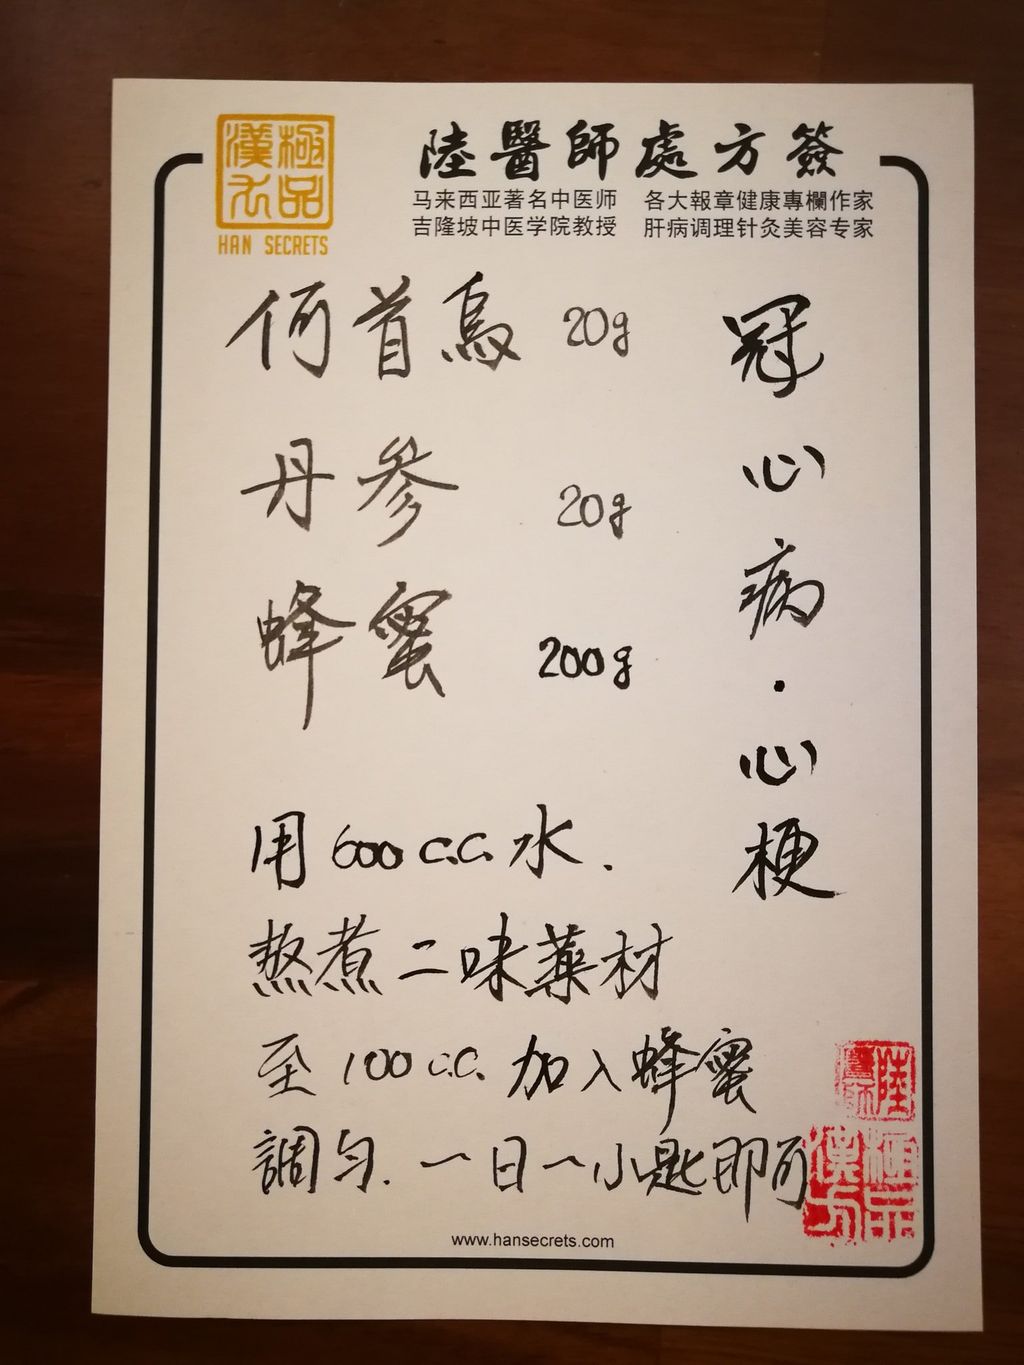 漢極
方品
HAN SECRETS
陸醫師處方簽
马来西亚著名中医师 各大報章健康專欄作家
吉隆坡中医学院教授 肝病调理针灸美容专家
何首烏 20g
丹參 20g
蜂蜜 200g
冠心病·心梗
用 600 c.c. 水.
熬煮二味藥材
至 100 c.c. 加入蜂蜜
調勻. 一日一小匙即可
陸醫師
www.hansecrets.com